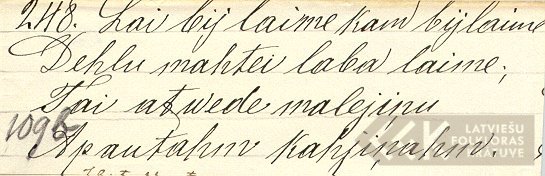 248. Lai bij laime kam bij laime
Dehlu mahtei laba laime;
Tai atwede malejinu
1095
Ap autahm kahjiņahm.
LATVIEŠU
FOLKLORAS
KRATUVE